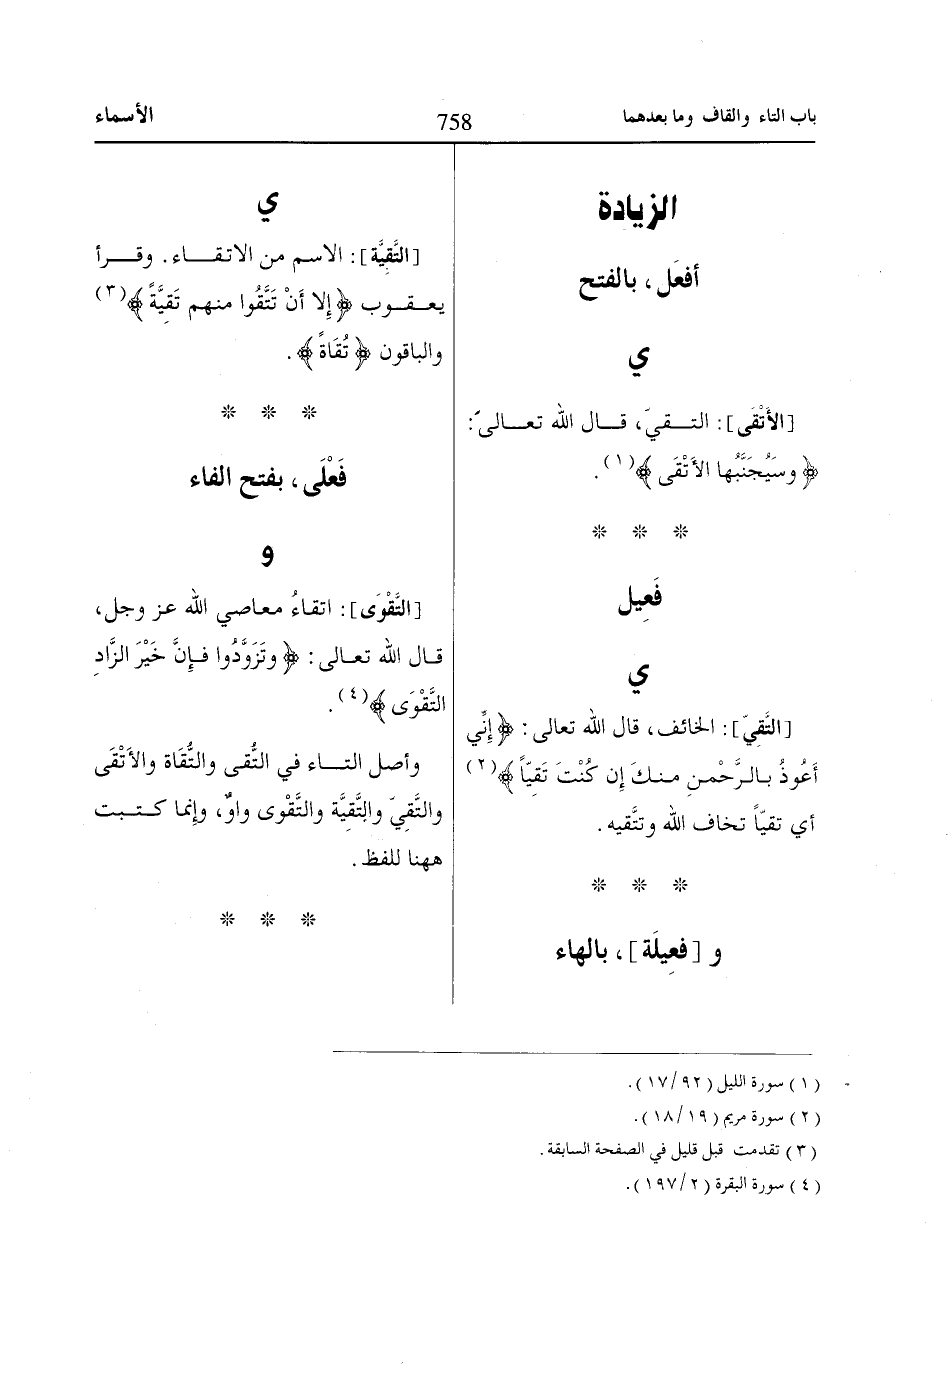 باب التاء والقاف وما بعدهما
758
الأسماء
الزيادة
أفعَل، بالفتح
ي
[الأَتْقَى]: التـــقيّ، قـــال الله تعـــالىّ:
﴿ وسَيُجَنَّبُها الأَتْقَى ﴾(١).
* * *
فَعِيل
ي
[التَّقِيّ]: الخائف، قال الله تعالى: ﴿إِنِّي
أَعُوذُ بـالـرَّحْمنِ منـكَ إِن كُنْتَ تَقيّاً ﴾(٢)
أي تقيّاً تخاف الله وتتَّقيه.
* * *
و [فَعِيلَة]، بالهاء
ي
[التَّقِيَّة]: الاسم من الاتقـــاء. وقـــرأ
يعـقــوب ﴿إِلا أَنْ تَتَّقُوا منهم تَقِيَّةً ﴾(٣)
والباقون ﴿ تُقَاةً ﴾.
* * *
فَعْلَى، بفتح الفاء
و
[التَّقْوَى]: اتقاءُ معاصي الله عز وجل،
قـال الله تعـالى: ﴿ وتَزَوَّدُوا فـإِنَّ خَيْرَ الزَّادِ
التَّقْوَى ﴾(٤).
وأصل التـــاء في التُّقى والتُّقَاة والأَتْقَى
والتَّقيّ والتَّقِيَّة والتَّقْوى واوٌ، وإِنما كـتـبـت
ههنا للفظ.
* * *
(١) سورة الليل (٩٢/١٧).
(٢) سورة مريم (١٩/١٨).
(٣) تقدمت قبل قليل في الصفحة السابقة.
(٤) سورة البقرة (٢/١٩٧).